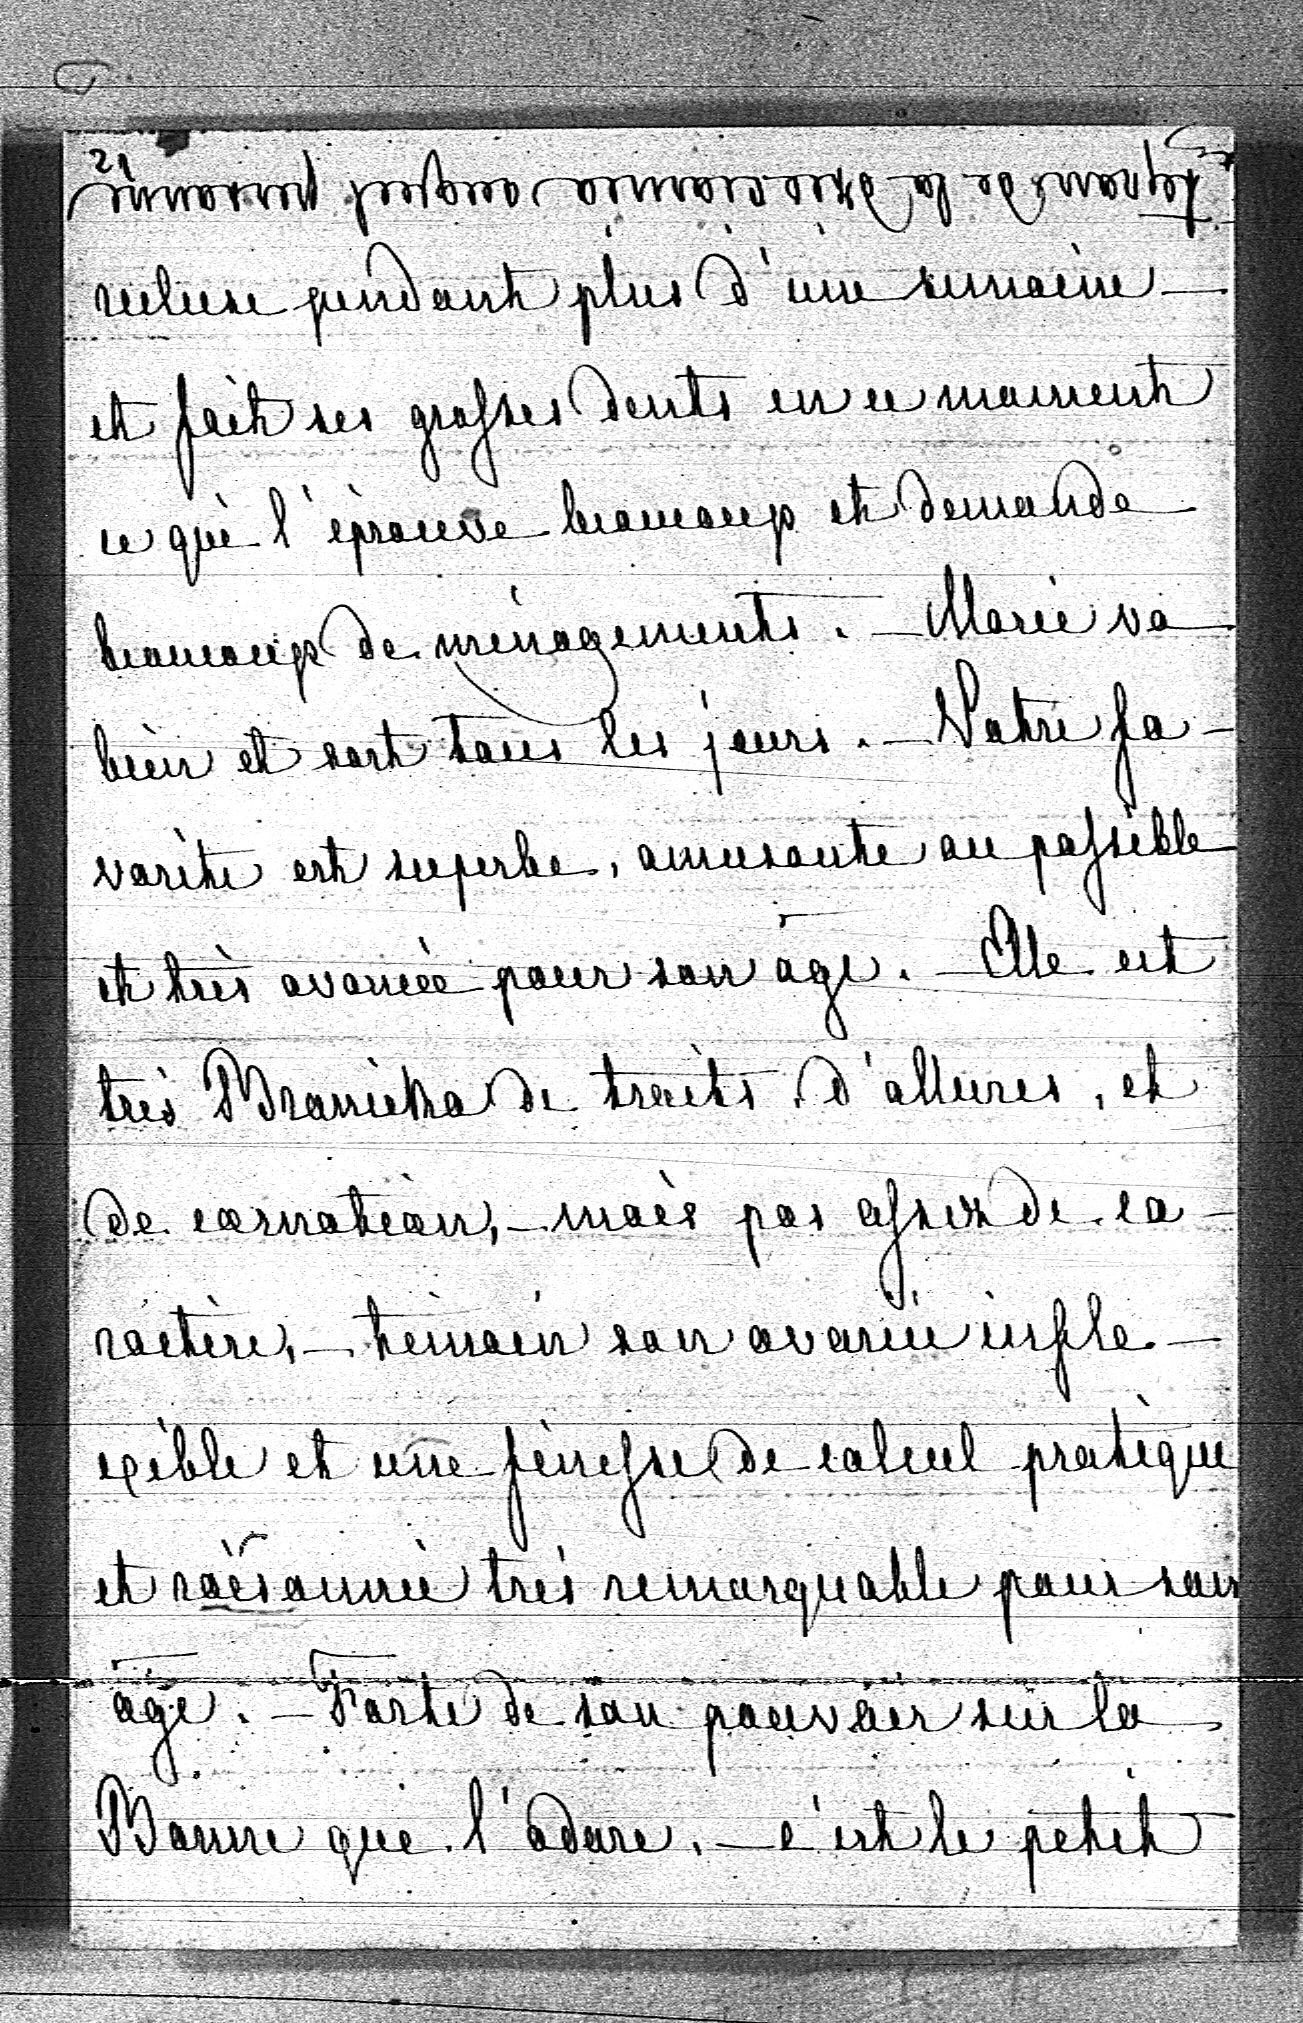 21
recluse pendant plus d'une semaine —
et fait ses grosses dents en ce moment
ce qui l'éprouve beaucoup et demande
beaucoup de ménagements. — Marie va
bien et sort tous les jours. — Votre fa-
vorite est superbe, amusante au possible
et très avancée pour son âge. — Elle est
très Branicka de traits, d'allures, et
de carnation, — mais pas assez de ca-
ractère, — témoin son avarie infle-
xible et une finesse de calcul pratique
et raisonnée très remarquable pour son
âge. — Forte de son pouvoir sur la
Bonne qui l'adore, — c'est le petit